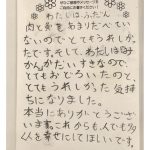 わたしはふだん
肉と魚をあまりたべてい
ないのでとてもうれしか
たです。そして、わたしはみ
かんがだいすきなので、
とてもおどろいたのと、
とてもうれしかった気持
ちになりました。
本当にありがとうござ
います。これからも人でも多
くを幸せにしてほしいです。